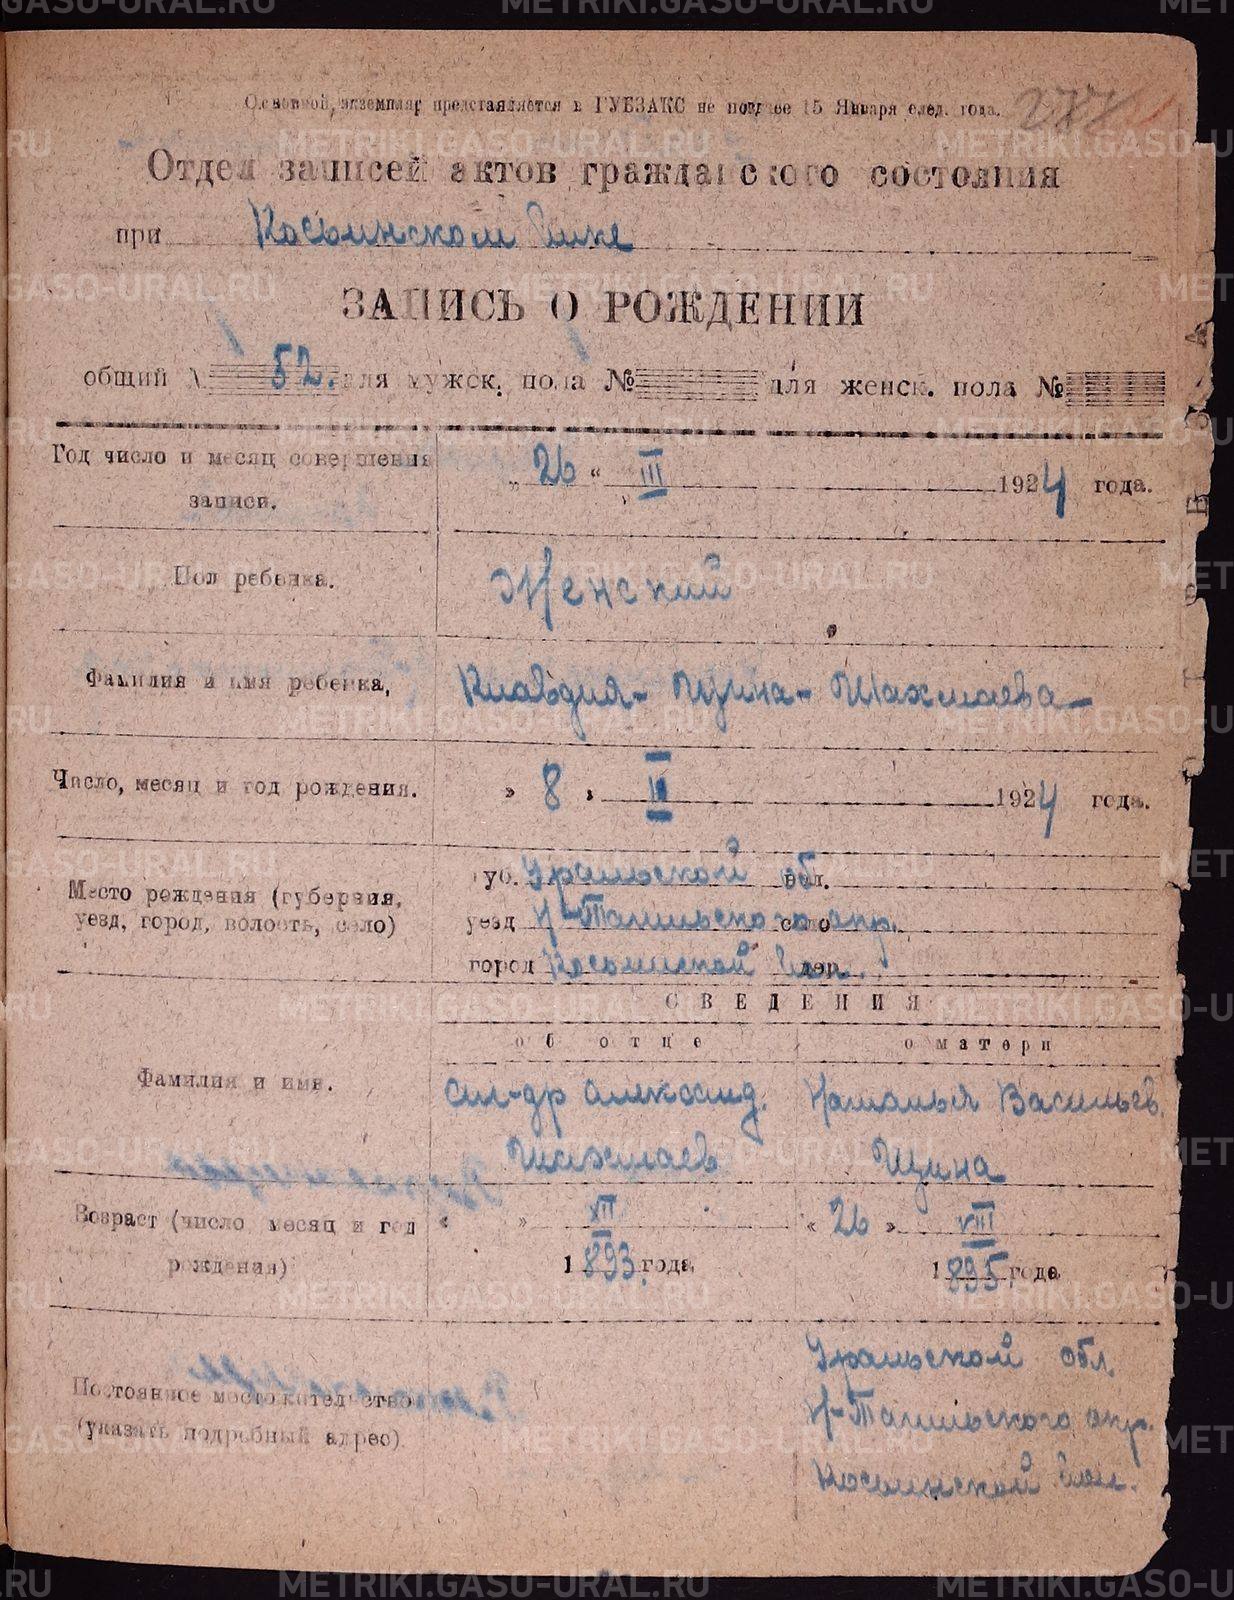 Основной экземпляр представляется в ГУБЗАКС не позднее 15 Января след. года.
277
Отдел записей актов гражданского состояния
при Косьинском
ЗАПИСЬ О РОЖДЕНИИ
общий № 52. для мужск. пола № для женск. пола №
Год число и месяц совершения записи. „ 26 “ III 1924 года.
Пол ребенка. Женский
Фамилия и имя ребенка, Клавдия - Щина - Шахмаева
Число, месяц и год рождения. » 8 » 1924 года.
Место рождения (губерния, уезд, город, волость, село) губ. Уральской обл. вол.
уезд Н-Тагильского окр. село
город Косьинской дер.
СВЕДЕНИЯ
об отце о матери
Фамилия и имя. Ал-др Александ. Наталья Васильев.
Шахмаев Щина
Возраст (число месяц и год рождения) « » XII « 26 » VIII
1893 года 1895 года
Постоянное местожительство (указать подробный адрес)
Уральской обл.
Н-Тагильского окр.
Косьинской
METRIKI.GASO-URAL.RU